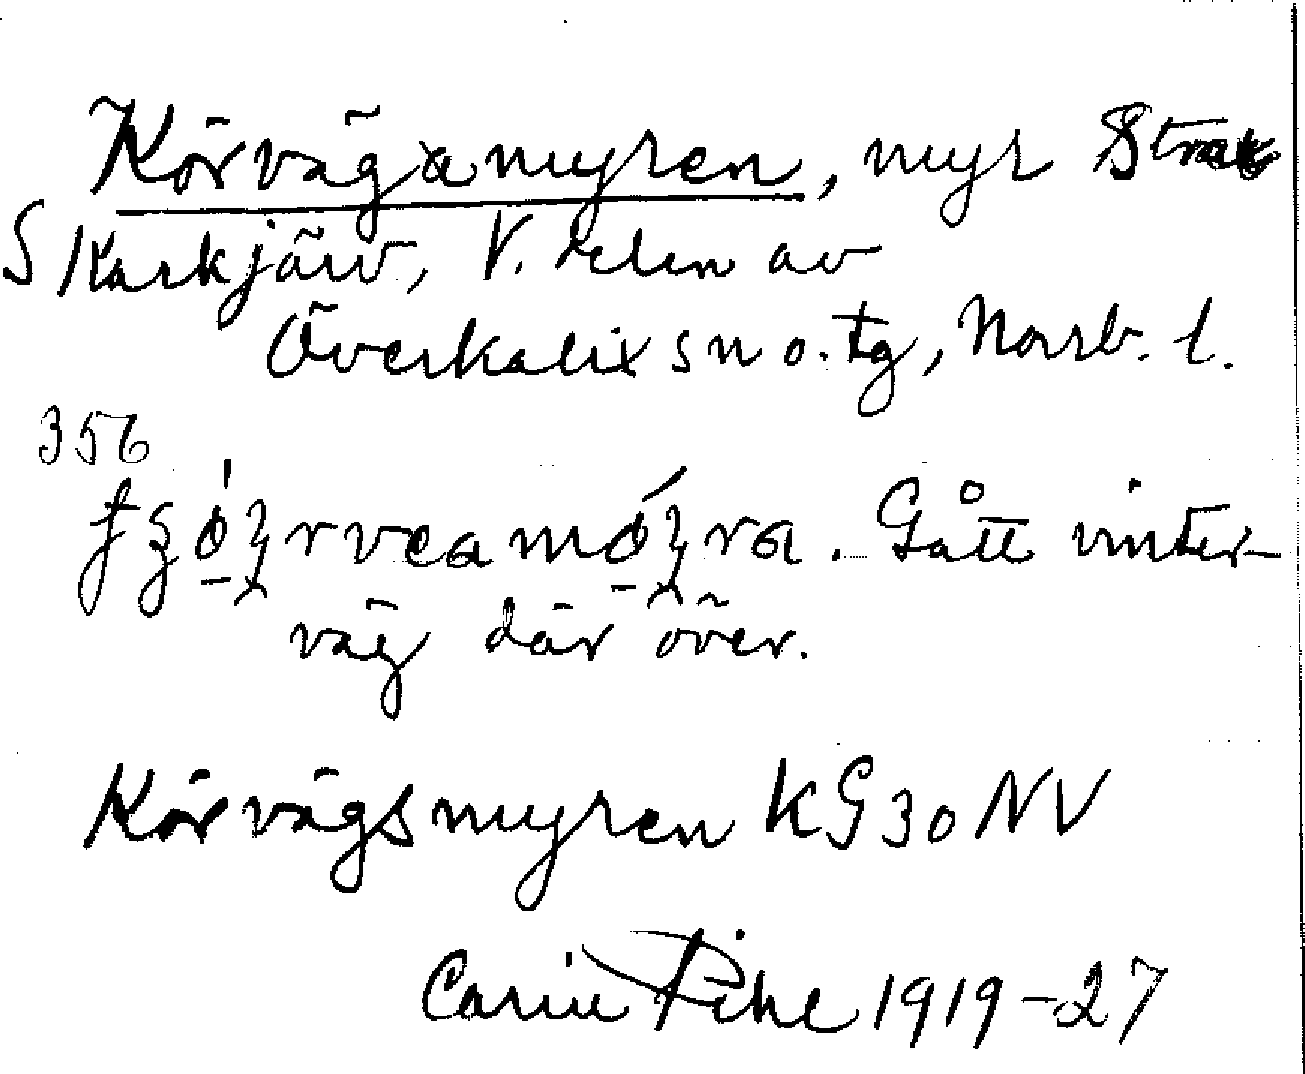 Körvägamyren, myr Strax
S Karkjärv, V. delen av
Överkalix sn o. tg, Norrb. l.
356
väg där över.
Gått vinter-
Körvägsmyren KG30NV
Carin Pihl 1919-27